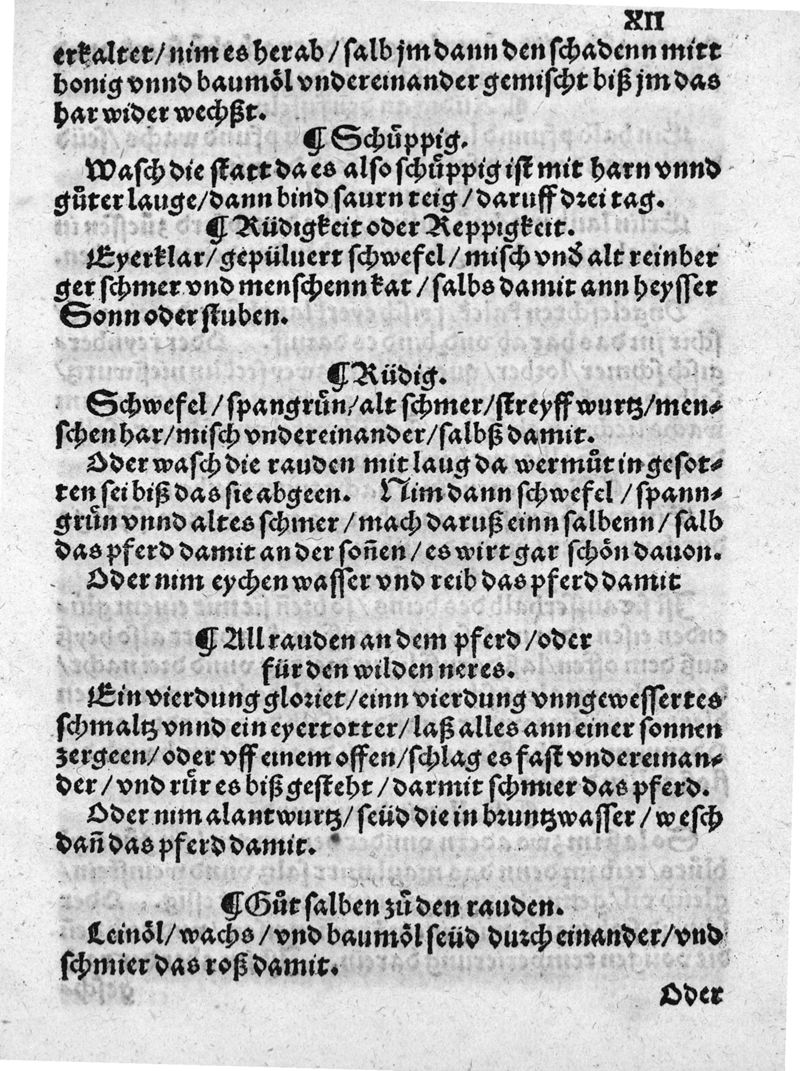 XII
erkaltet/nim es herab/salb jm dann den schadenn mitt
honig vnnd baumöl vndereinander gemischt biß jm das
har wider wechßt.
¶ Schuͤppig.
Wasch die statt da es also schuͤppig ist mit harn vnnd
guͦter lauge/dann bind saurn teig/daruff drei tag.
¶ Rüdigkeit oder Reppigkeit.
Eyerklar/gepüluert schwefel/misch vnd alt reinber
ger schmer vnd menschenn kat/salbs damit ann heysser
Sonn oder stuben.
¶ Rüdig.
Schwefel/spangruͤn/alt schmer/streyff wurtz/men⸗
schen har/misch vndereinander/salbß damit.
Oder wasch die rauden mit laug da wermuͦt in gesot⸗
ten sei biß das sie abgeen. Nim dann schwefel/spann⸗
gruͤn vnnd altes schmer/mach daruß einn salbenn/salb
das pferd damit an der soñen/es wirt gar schön dauon.
Oder nim eychen wasser vnd reib das pferd damit
¶ All rauden an dem pferd/oder
für den wilden neres.
Ein vierdung gloriet/einn vierdung vnngewessertes
schmaltz vnnd ein eyertotter/laß alles ann einer sonnen
zergeen/oder vff einem offen/schlag es fast vndereinan⸗
der/vnd ruͤr es biß gesteht/darmit schmier das pferd.
Oder nim alantwurtz/seüd die in bruntzwasser/wesch
dañ das pferd damit.
¶ Guͦt salben zuͦ den rauden.
Leinöl/wachs/vnd baumöl seüd durch einander/vnd
schmier das roß damit.
Oder